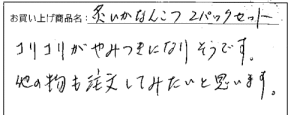 お買い上げ商品名:炙いかなんこつ 2パックセット
コリコリがやみつきになりそうです。
他の物も注文してみたいと思います。